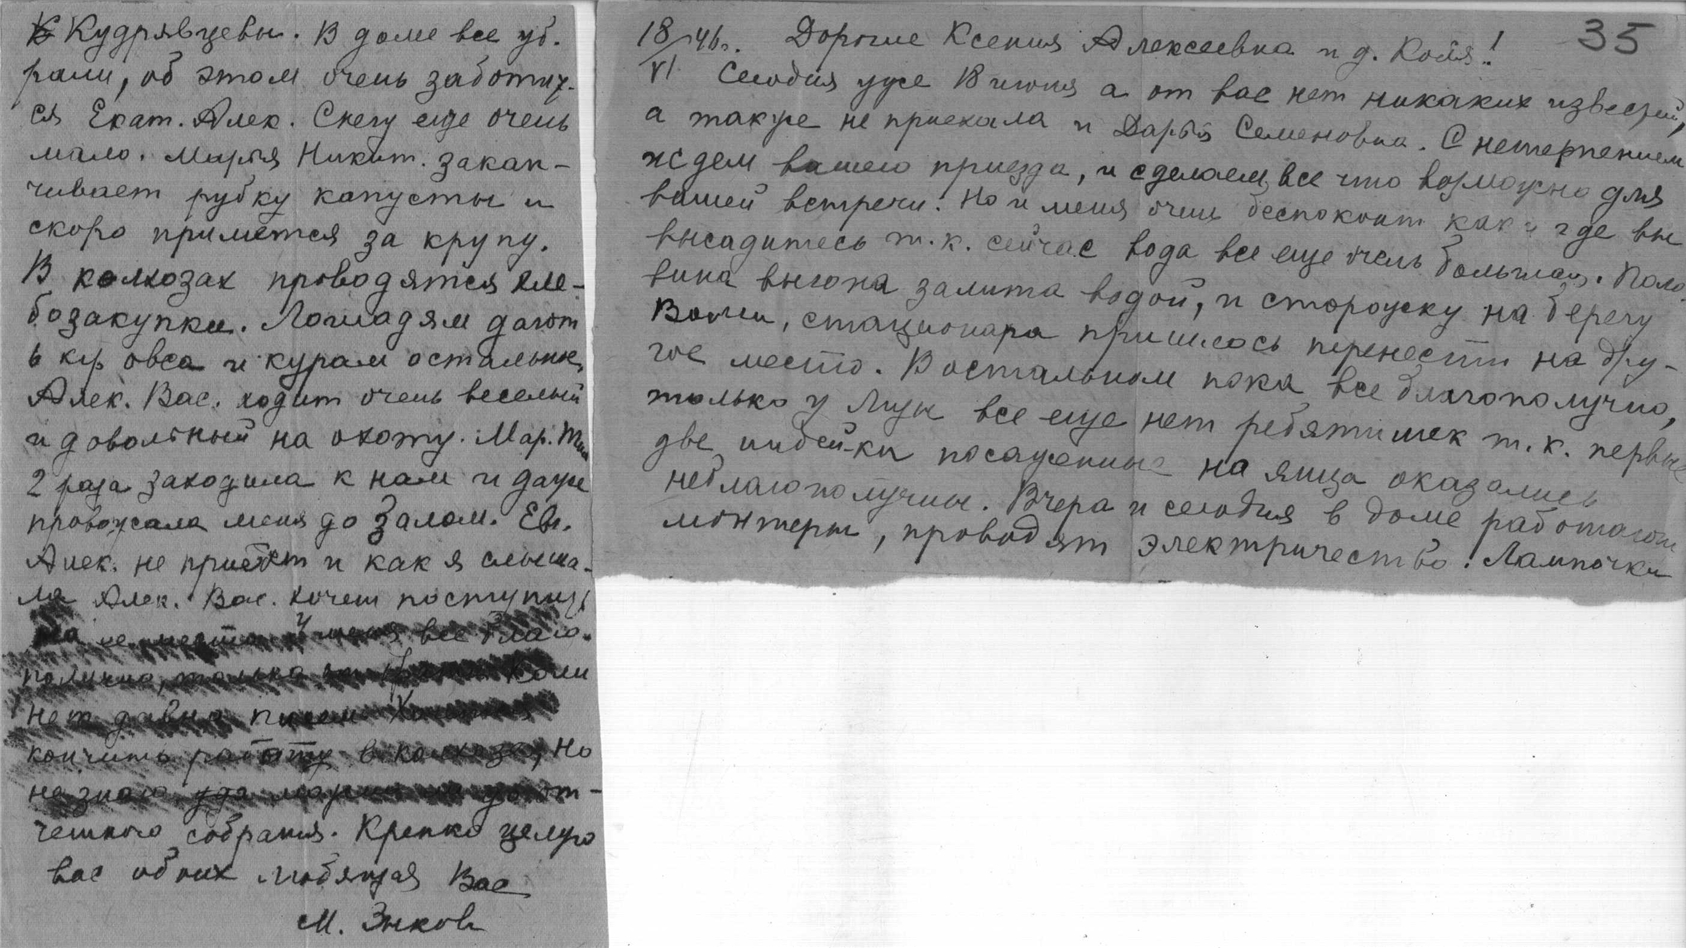 Кудрявцевы. В доме все уб.
рали, об этом очень заботит-
ся Екат. Алек. Снегу еще очень
мало. Марья Никит. закан-
чивает рубку капусты и
скоро примется за крупу.
В колхозах проводятся хле-
бозакупки. Лошадям дают
6 кгр овса и курам остальные
Алек. Вас. ходит очень веселый
и довольный на охоту. Мар.
2 раза заходила к нам и даже
провожала меня до Залом. Евг.
Алек. не приедет и как я слыша-
ла Алек. Вас. хочет поступить
на ее место У меня все благо-
получно, только от Коли
нет давно писем
кончить работу в колхозе, но
не знаю до от-
четного собрания. Крепко целую
вас обоих любящая Вас
М. Зыков
35
18/VI 46г. Дорогие Ксения Алексеевна и д. Коля!
Сегодня уже 18 июня а от вас нет никаких известий,
а также не приехала и Дарья Семеновна. С нетерпением
ждем вашего приезда, и сделаем все что возможно для
вашей встречи! Но и меня очень беспокоит как и где вы
высадитесь т.к. сейчас вода все еще очень большая. Поло-
вина выгона залита водой, и сторожку на берегу
Волги, стационара пришлось перенести на дру-
гое место. В остальном пока все благополучно,
только у Муси все еще нет ребятишек т.к. первые
две индейки посаженные на яйца оказались
неблагополучны. Вчера и сегодня в доме работают
монтеры, проводят электричество! Лампочки